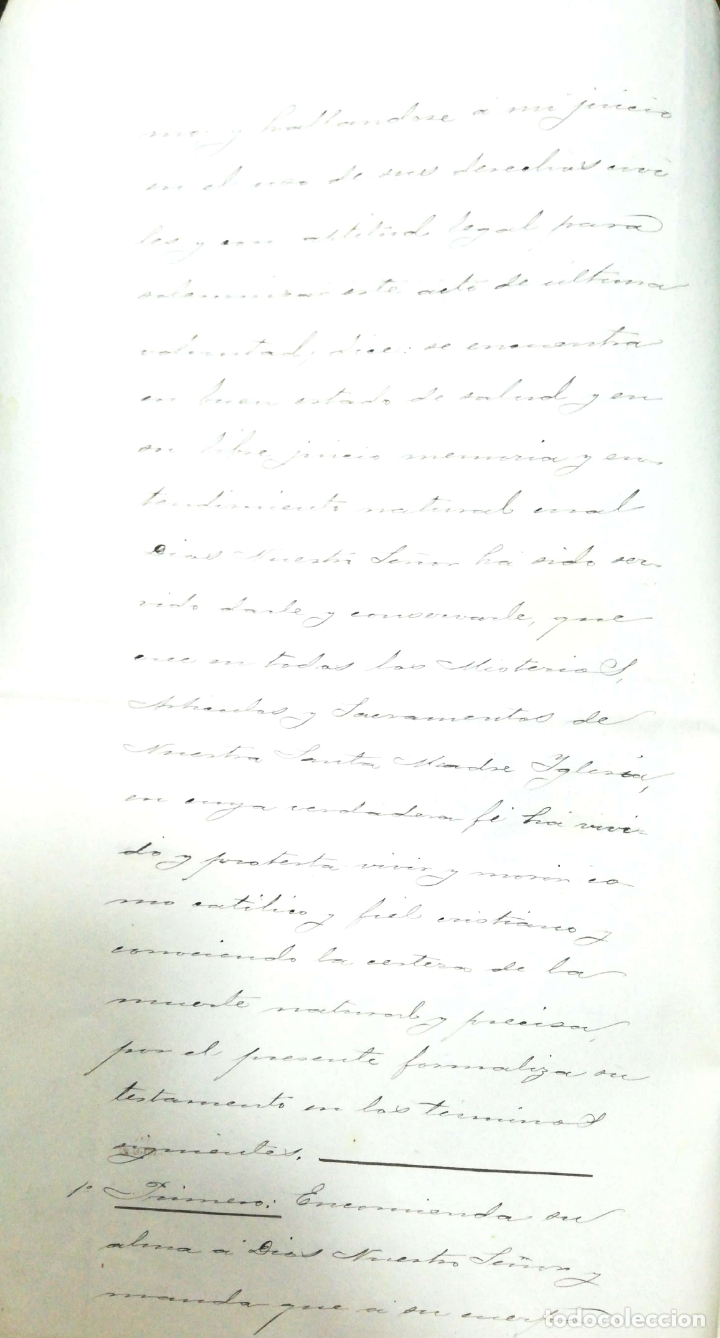 mo, y hallandose á mi juicio
en el uso de sus derechos civi
les y con aptitud legal para
solemnizar este acto de última
voluntad, dice: se encuentra
en buen estado de salud, y en
su libre juicio memoria y en-
tendimiento natural cual
Dios Nuestro Señor há sido ser-
vido darle y conservarle, que
cree en todos los Misterios,
Articulos, y Sacramentos de
Nuestra Santa Madre Yglesia,
en cuya verdadera fé há vivi-
do y protesta vivir y morir co-
mo católico y fiel cristiano y
conociendo la certeza de la
muerte natural y precisa,
por el presente formaliza su
testamento en los terminos
siguientes.
1º Primero: Encomienda su
alma á Dios Nuestro Señor y
manda que á su cuerpo
todocoleccion